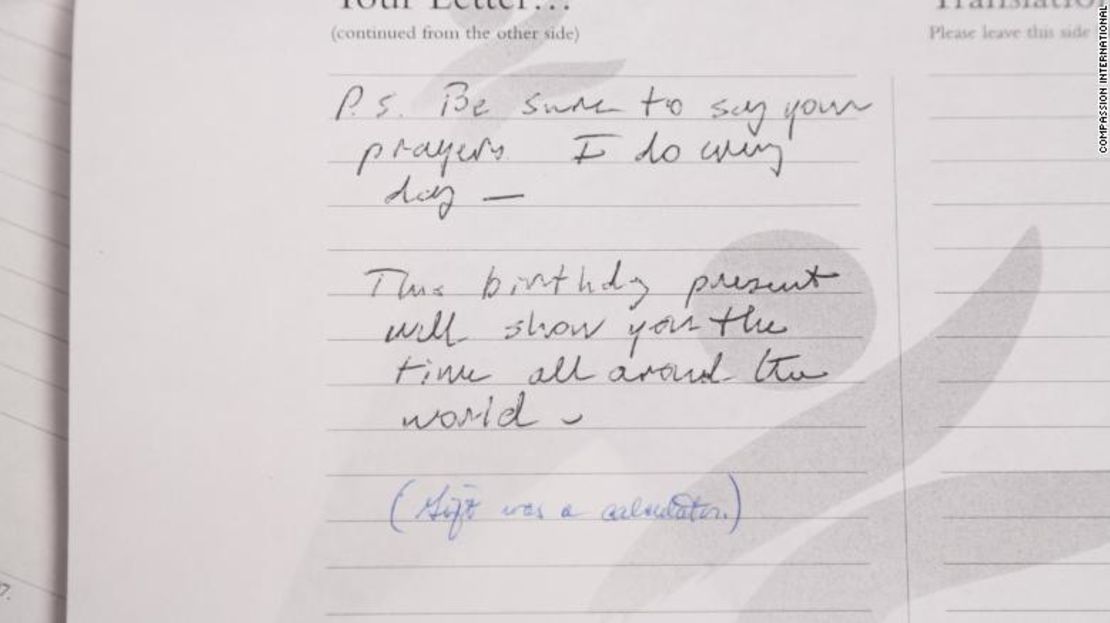 Your Letter...
(continued from the other side)
P.S. Be sure to say your
prayers I do every
day —
This birthday present
will show you the
time all around the
world -
(Gift was a calculator.)
Translation
Please leave this side
COMPASSION INTERNATIONAL
7.